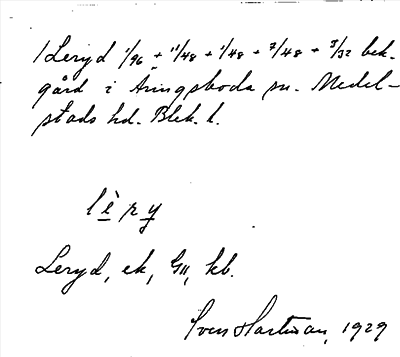 1 Leryd 1/96 + 11/48 + 1/48 + 7/48 + 3/32 bek.
gård i Åringsboda sn. Medel-
stads hd. Blek. l.
lèry
Leryd, ek, G11, kb.
Sven Hartman, 1929